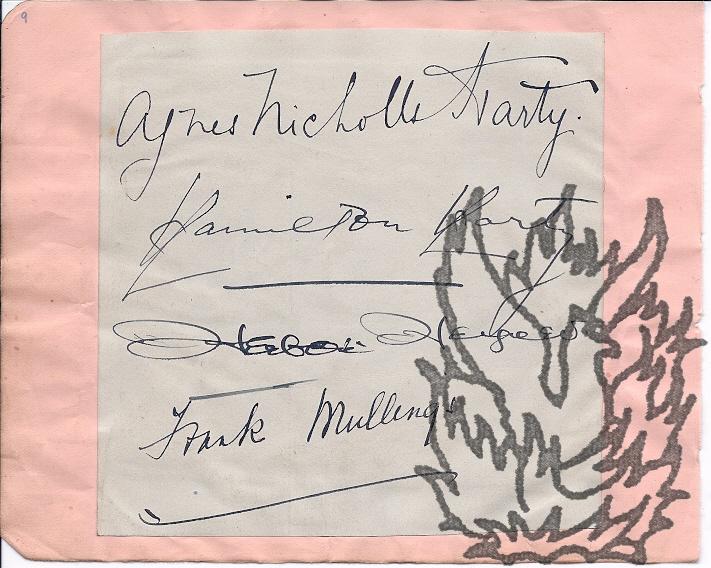 9
Agnes Nicholls Harty.
Hamilton Harty
Frank Mullings